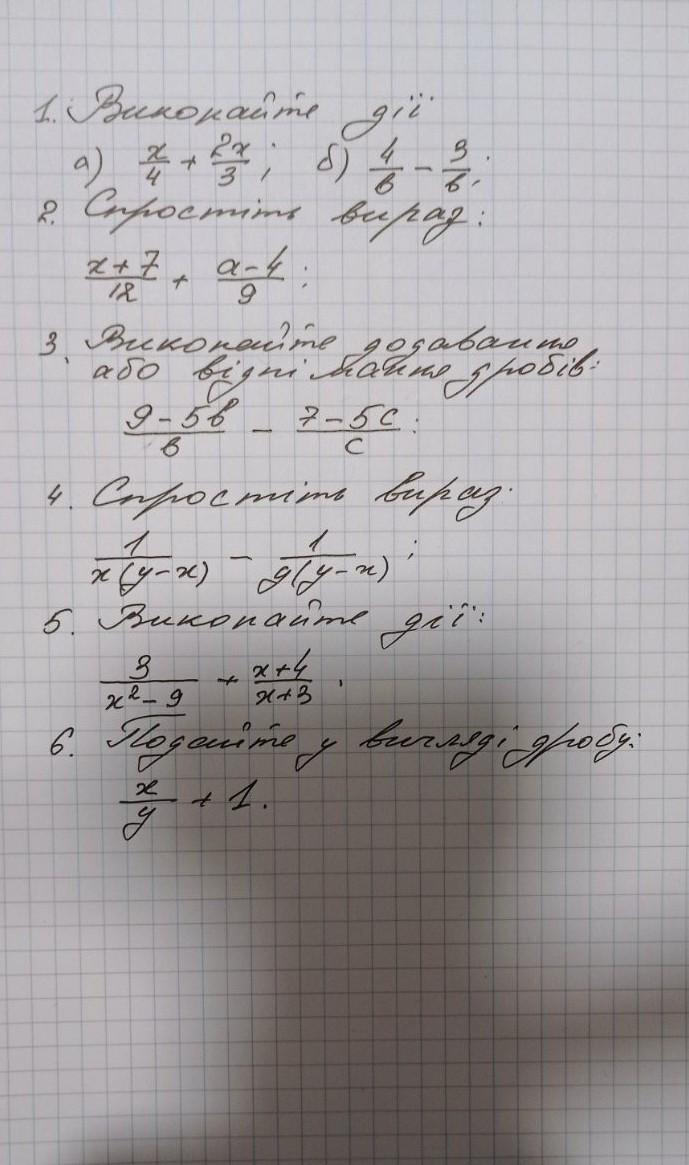 1. Виконайте дії
а) x/4 + 2x/3; б) 4/в - 3/в;
2. Спростіть вираз:
x+7/12 + a-4/9;
3. Виконайте додавання
або віднімання дробів:
9-5в/в - 7-5с/с:
4. Спростіть вираз.
1/x(y-x) - 1/y(y-x);
5. Виконайте дії:
3/x²-9 + x+4/x+3.
6. Подайте у вигляді дробу:
x/y + 1.